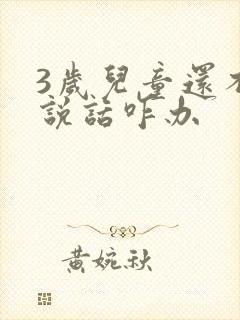 3歲兒童還不
說話咋办
黃婉秋